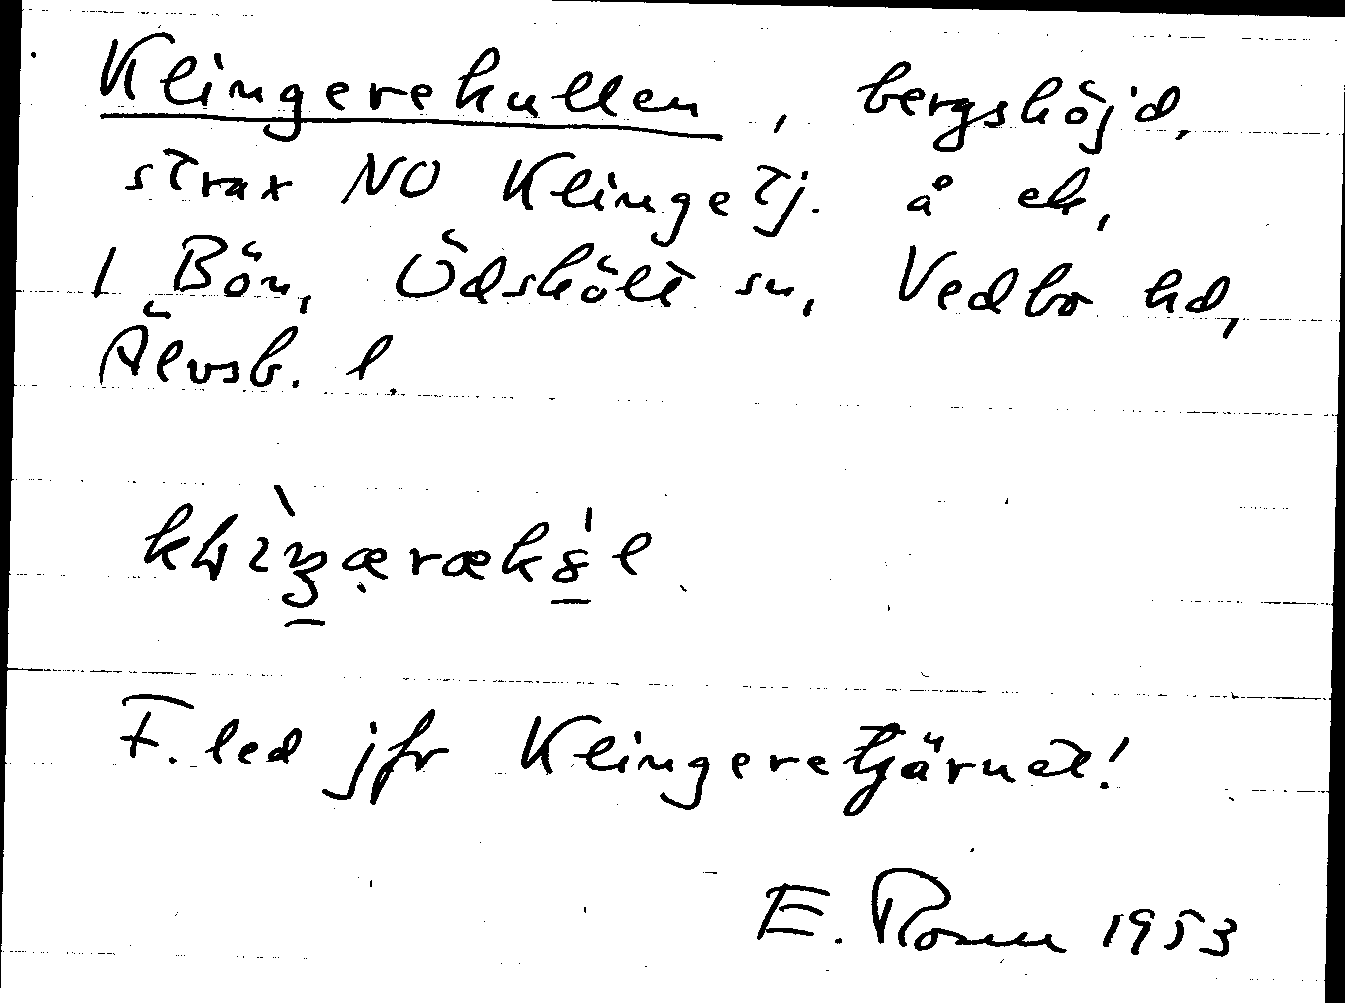 Klingerekullen, bergshöjd,
strax NO Klingetj. å ek,
1 Bön, Ödskölt sn, Vedbo hd,
Älvsb. l.
F. led jfr Klingeretjärnet!
E. 1953